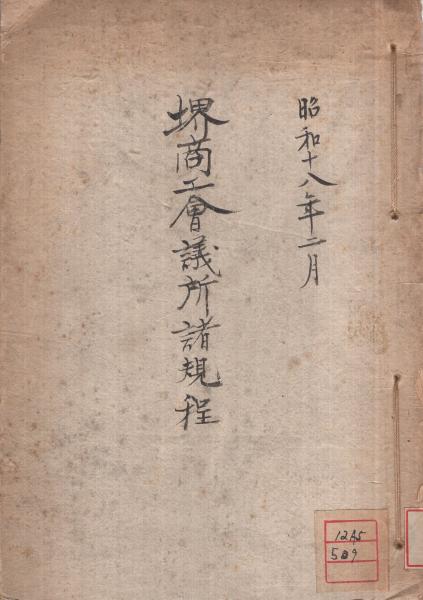 昭和十八年二月
堺商工會議所諸規程
12A5
509